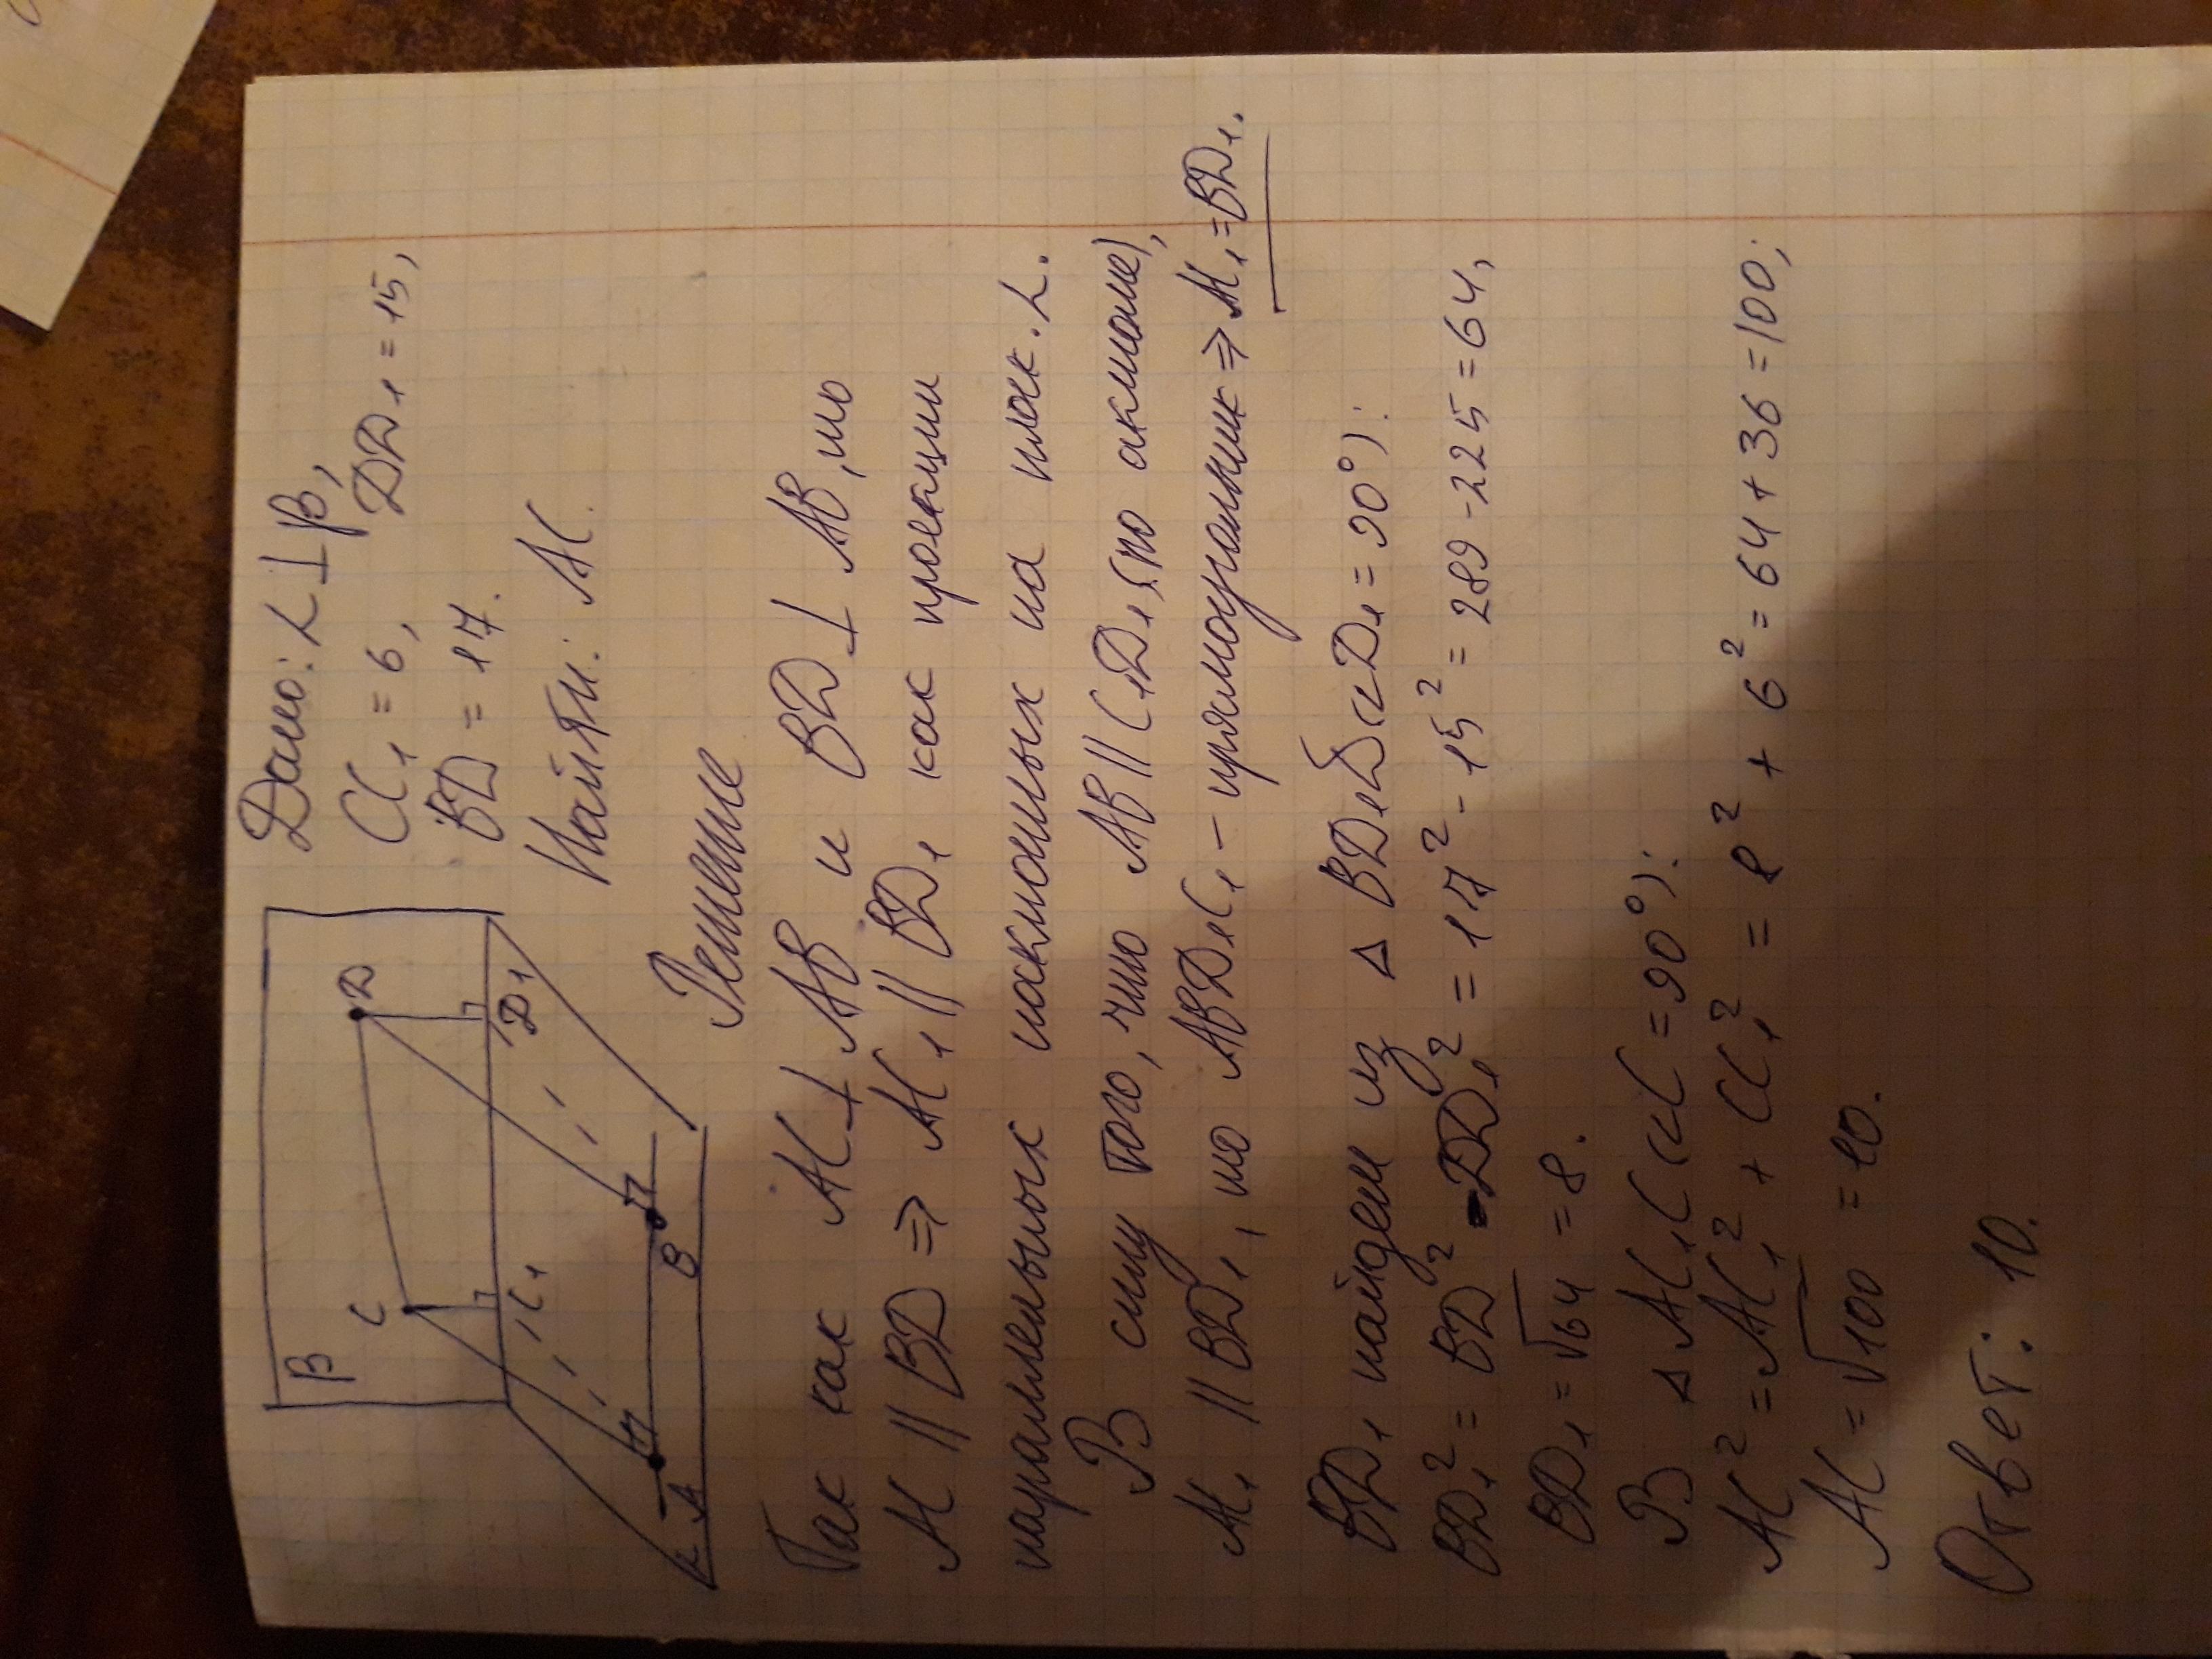 Дано: α ⊥ β,
CC₁ = 6, DD₁ = 15,
BD = 17.
Найти: AC.
β
C
D
C₁
D₁
A
B
α
Решение
Так как AC ⊥ AB и BD ⊥ AB, то
AC || BD ⇒ AC₁ || BD₁ как проекции
параллельных наклонных на плоск. α.
В силу того, что AB || C₁D₁ (по аксиоме),
AC₁ || BD₁, то ABD₁C₁ - прямоугольник ⇒ AC₁ = BD₁.
BD₁ найдем из △ BD₁D (∠D₁ = 90°):
BD₁² = BD² - DD₁² = 17² - 15² = 289 - 225 = 64,
BD₁ = √64 = 8.
В △ AC₁C (∠C = 90°):
AC² = AC₁² + CC₁² = 8² + 6² = 64 + 36 = 100;
AC = √100 = 10.
Ответ: 10.